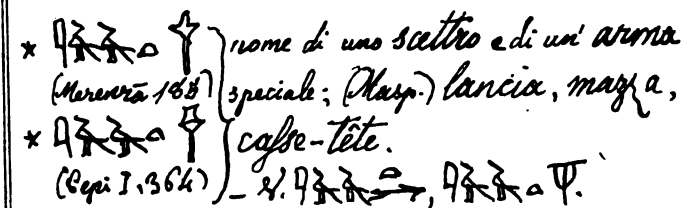 * 𓇋𓄿𓄿𓏏 nome di uno scettro e di un' arma
(Merenrā 188) speciale; (Masp.) lancia, mazza,
* 𓇋𓄿𓄿𓏏 casse-tête.
(Pepi I, 364) – V. 𓇋𓄿𓄿𓏏, 𓇋𓄿𓄿𓏏.